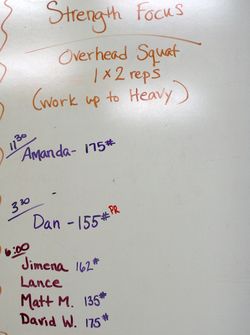 Strength Focus
Overhead Squat
1 x 2 reps
(work up to Heavy)
11:30
Amanda - 175#
3:30
Dan - 155# PR
6:00
Jimena 162#
Lance
Matt M. 135#
David W. 175#